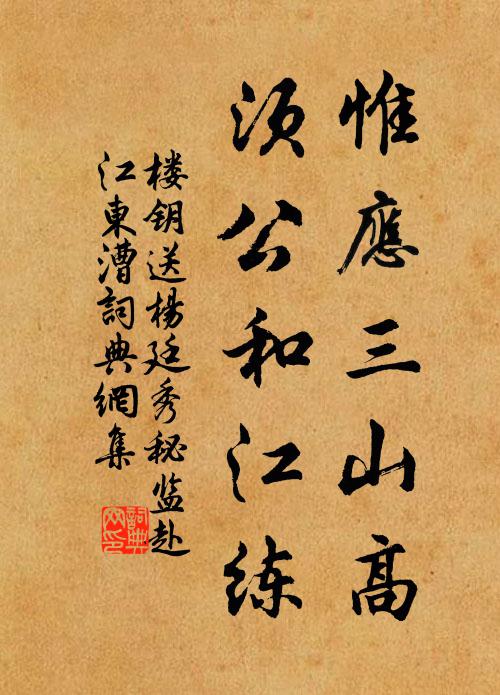 惟應三山高
須公和江练
楼钥送楊廷秀秘监赴
江東漕詞典網集
詞典网印